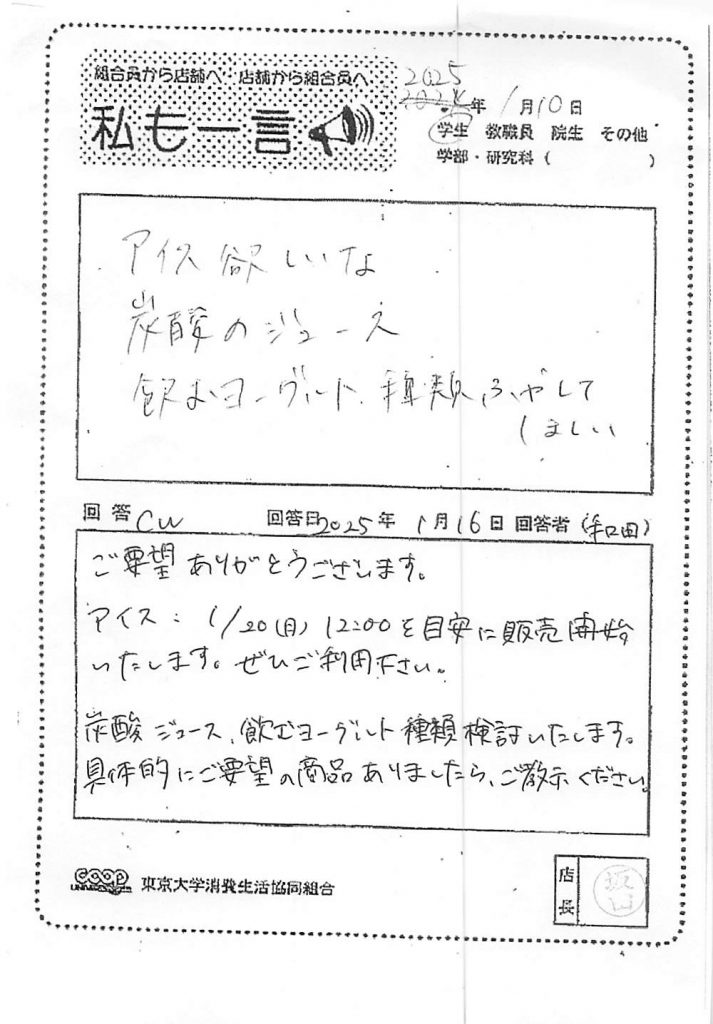 組合員から店舗へ 店舗から組合員へ
私も一言
2025
年 1月10日
学生 教職員 院生 その他
学部・研究科( )
アイス欲しいな
炭酸のジュース
飲むヨーグルト、種類ふやして
ほしい
回答 CW 回答日2025年 1月16日 回答者( )
ご要望ありがとうございます。
アイス: 1/20(月) 12:00を目安に販売開始
いたします。ぜひご利用下さい。
炭酸ジュース、飲むヨーグルト種類検討いたします。
具体的にご要望の商品ありましたら、ご教示ください。
coop 東京大学消費生活協同組合
店長